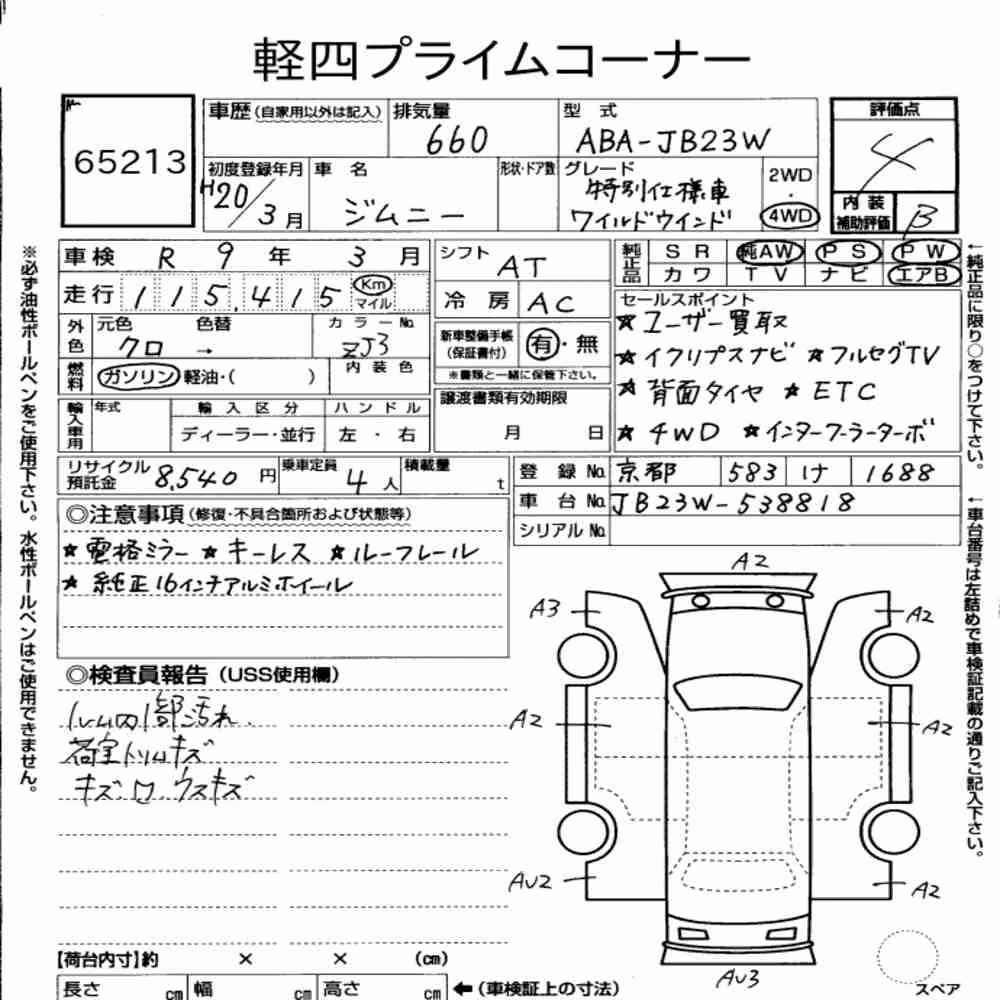 軽四プライムコーナー
65213
車歴(自家用以外は記入)
排気量
660
型式
ABA-JB23W
評価点
4
初度登録年月
H20/3月
車名
ジムニー
形状・ドア数
グレード
特別仕様車
ワイルドウインド
2WD
・
4WD
内装
補助評価
B
車検 R 9年 3月
シフト
AT
純正品
SR 純AW PS PW
カワ TV ナビ エアB
走行 115,415 Km
マイル
冷房 AC
セールスポイント
★ユーザー買取
★イクリプスナビ ★フルセグTV
★背面タイヤ ★ETC
★4WD ★インタークーラーターボ
外色
元色 色替
クロ →
カラーNo.
ZJ3
新車整備手帳
(保証書付)
有・無
※書類と一緒に保管下さい。
燃料
ガソリン 軽油・( )
内装色
譲渡書類有効期限
月 日
輸入車用
年式
輸入区分
ハンドル
ディーラー・並行
左・右
リサイクル
預託金
8,540円
乗車定員
4人
積載量
t
登録No. 京都 583 け 1688
車台No. JB23W-538818
シリアルNo.
◎注意事項(修復・不具合箇所および状態等)
★電格ミラー ★キーレス ★ルーフレール
★純正16インチアルミホイール
◎検査員報告(USS使用欄)
ルーム内1部汚れ.
荷室トリムキズ
キズ・凹 ウスキズ
A2
A3
A2
A2
A2
AU2
A2
AU3
スペア
【荷台内寸】約 × × (cm)
長さ cm 幅 cm 高さ cm ←(車検証上の寸法)
※必ず油性ボールペンをご使用下さい。水性ボールペンはご使用できません。
←純正品に限り○をつけて下さい。
←車台番号は左詰めで車検証記載の通りご記入下さい。